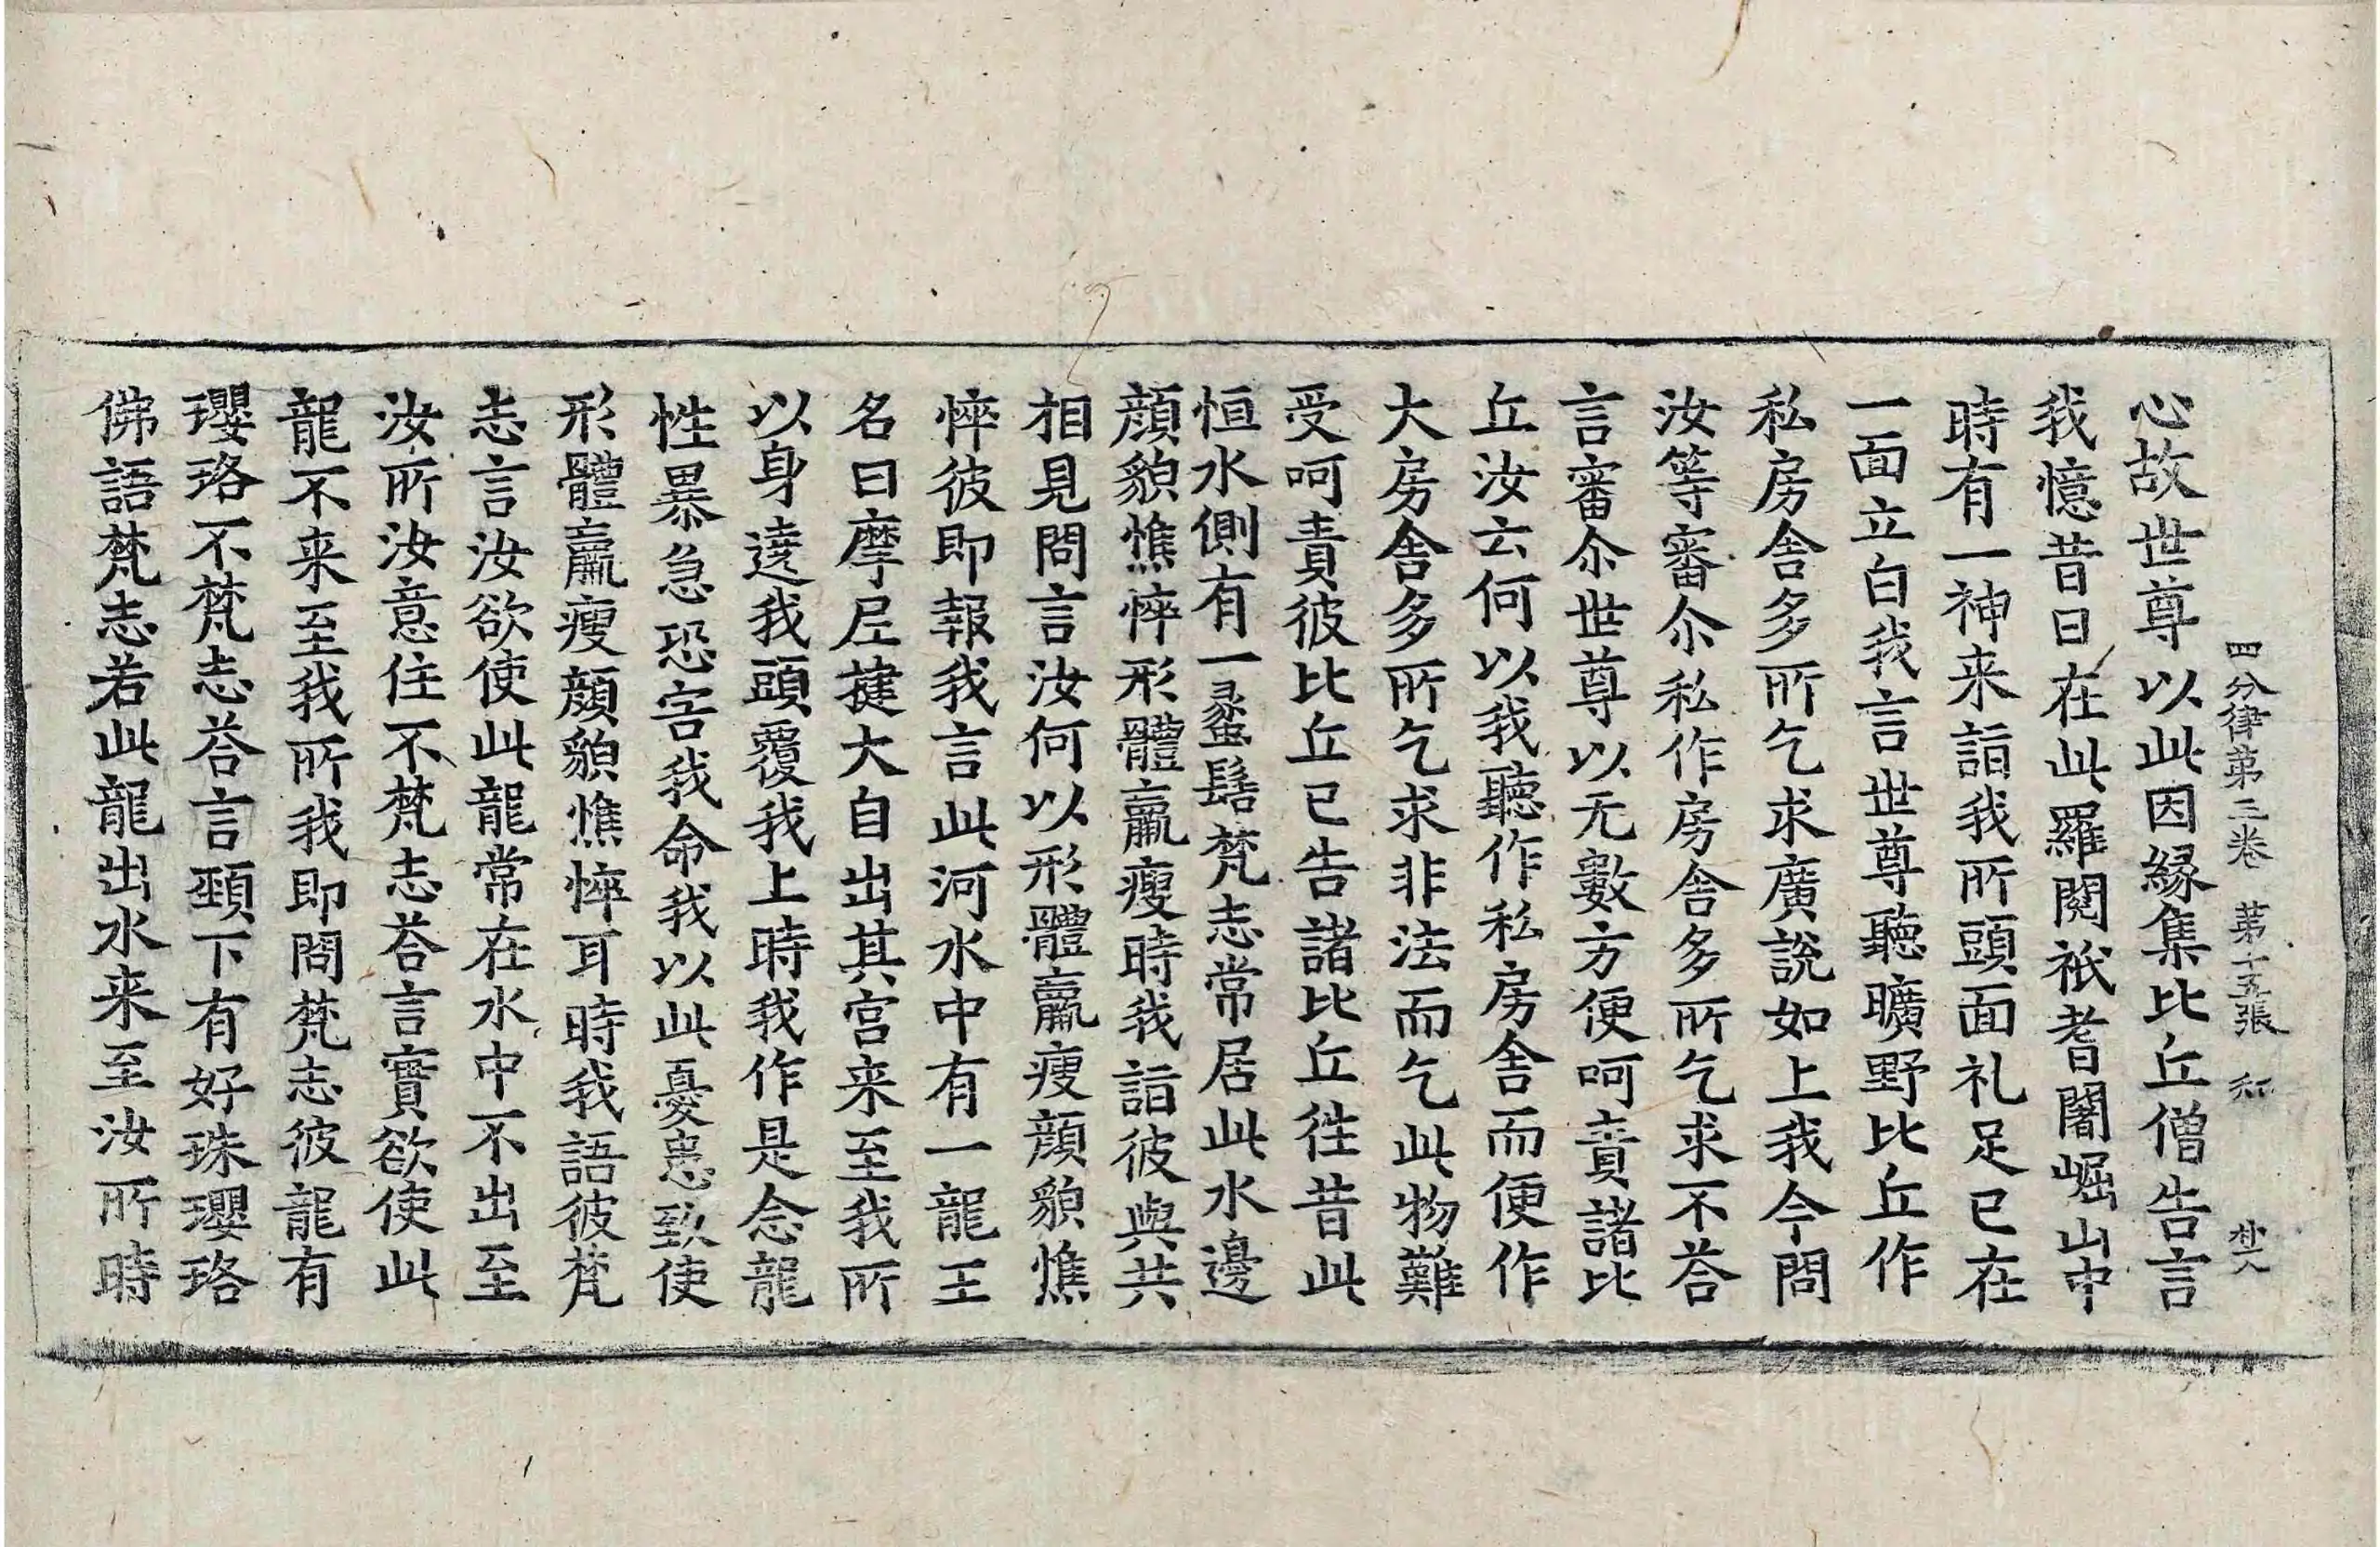 四分律第三卷 第十五張
心故世尊以此因緣集比丘僧告言
我憶昔日在此羅閱祇耆闍崛山中
時有一神来詣我所頭面礼足已在
一面立白我言世尊聽曠野比丘作
私房舍多所乞求廣說如上我今問
汝等審尒私作房舍多所乞求不荅
言審尒世尊以无數方便呵責諸比
丘汝云何以我聽作私房舍而便作
大房舍多所乞求非法而乞此物難
受呵責彼比丘已告諸比丘徃昔此
恒水側有一螺髻梵志常居此水邊
顏貌憔悴形體羸瘦時我詣彼與共
相見問言汝何以形體羸瘦顏貌憔
悴彼即報我言此河水中有一龍王
名曰摩尼揵大自出其宮来至我所
以身遶我頭覆我上時我作是念龍
性暴急恐害我命我以此憂患致使
形體羸瘦顏貌憔悴耳時我語彼梵
志言汝欲使此龍常在水中不出至
汝所汝意住不梵志荅言實欲使此
龍不来至我所我即問梵志彼龍有
瓔珞不梵志荅言頸下有好珠瓔珞
佛語梵志若此龍出水来至汝所時